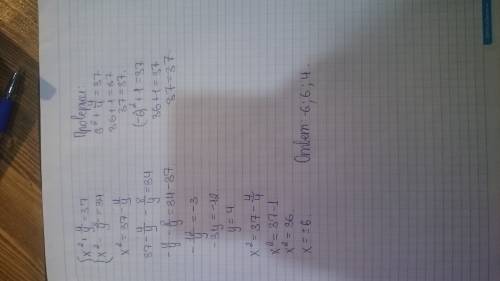 {x² + 4/y = 37
{x² - 8/y = 34
x² = 37 - 4/y
37 - 4/y - 8/y = 34
-4/y - 8/y = 34 - 37
-12/y = -3
-3y = -12
y = 4
x² = 37 - 4/4
x² = 37 - 1
x² = 36
x = ±6
Проверка:
6² + 4/4 = 37
36 + 1 = 37
37 = 37.
(-6)² + 1 = 37
36 + 1 = 37
37 = 37.
Ответ: -6; 6; 4.